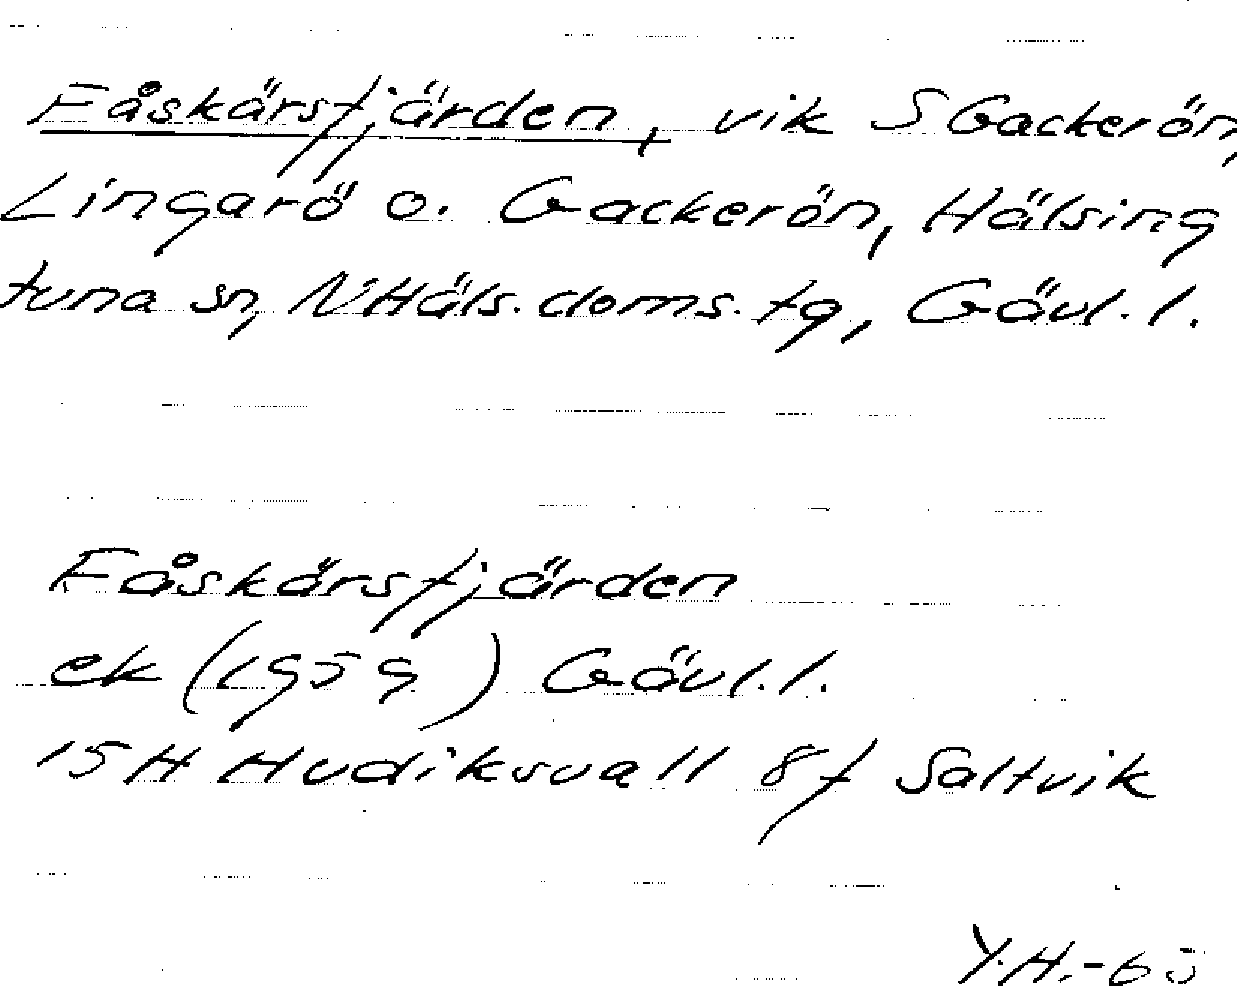 Fåskärsfjärden, vik S Gackerön,
Lingarö o. Gackerön, Hälsing
tuna sn, N Häls. doms. tg, Gävl. l.
Fåskärsfjärden
ek (1959) Gävl. l.
15H Hudiksvall 8f Saltvik
Y.H.-65